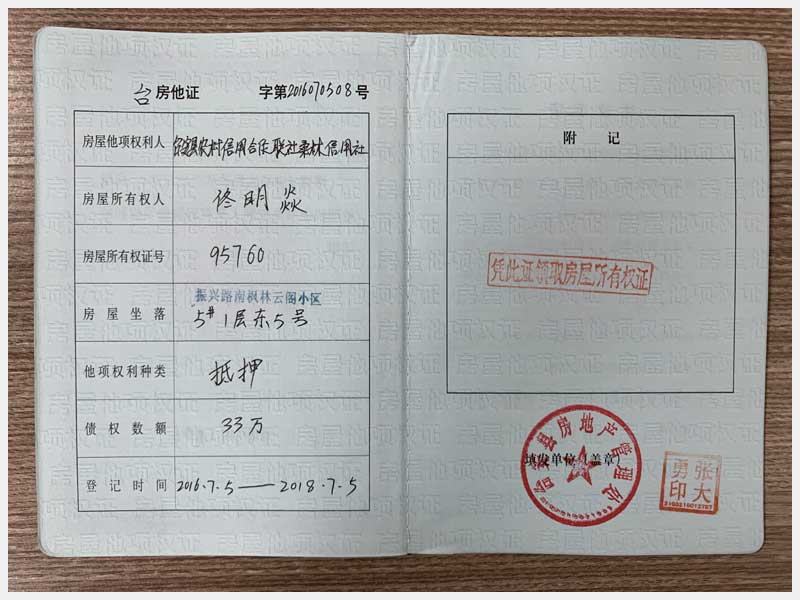 台房他证 字第2016070508号
房屋他项权利人 台安县农村信用合作联社桑林信用社
房屋所有权人 佟明焱
房屋所有权证号 95760
房屋坐落 振兴路南枫林云阁小区
5#1层东5号
他项权利种类 抵押
债权数额 33万
登记时间 2016.7.5——2018.7.5
附记
凭此证领取房屋所有权证
台安县房地产管理处
填发单位（盖章）
张大勇印